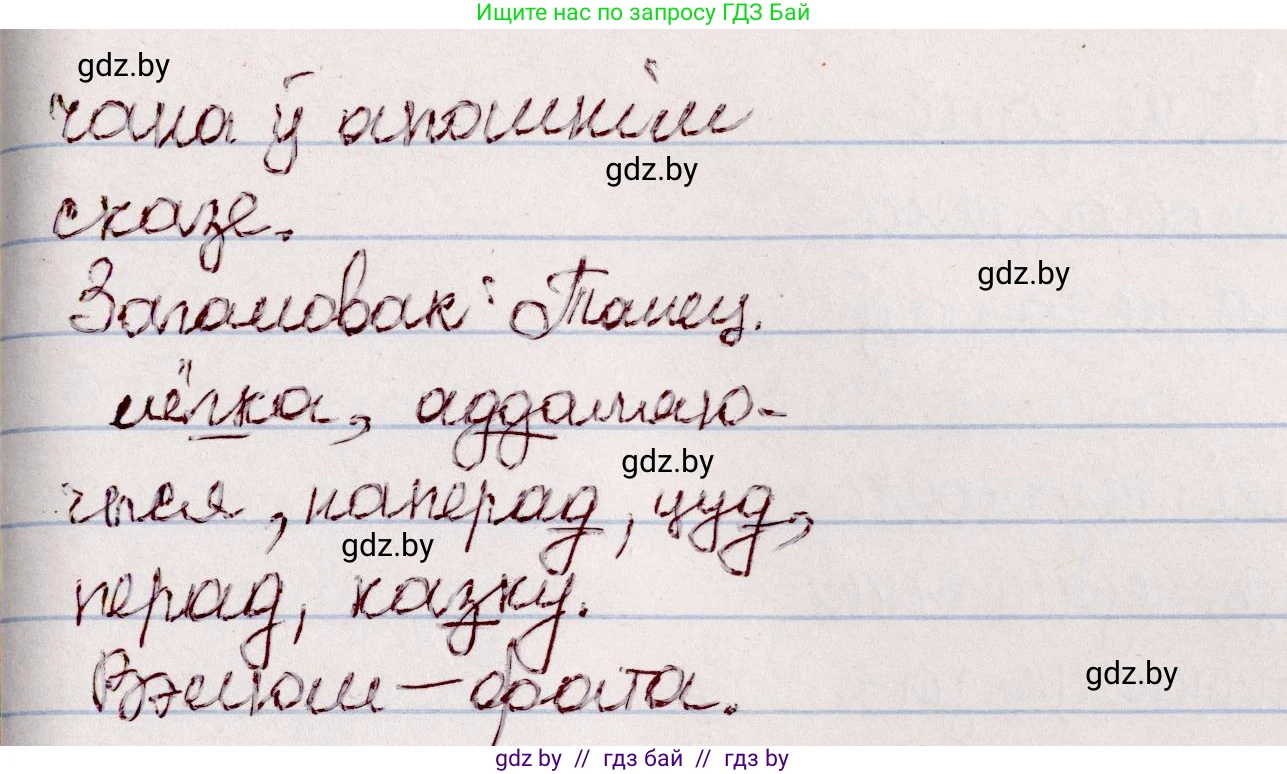 Ищите нас по запросу ГДЗ Бай
gdz.by
чана ў апошнім
gdz.by
сказе.
gdz.by
Загаловак: Танец.
лёгка, аддаляю-
gdz.by
чыся, наперад, цуд,
gdz.by
перад, казку.
gdz.by
Вэлюм – фата.
gdz.by // гдз бай // гдз by